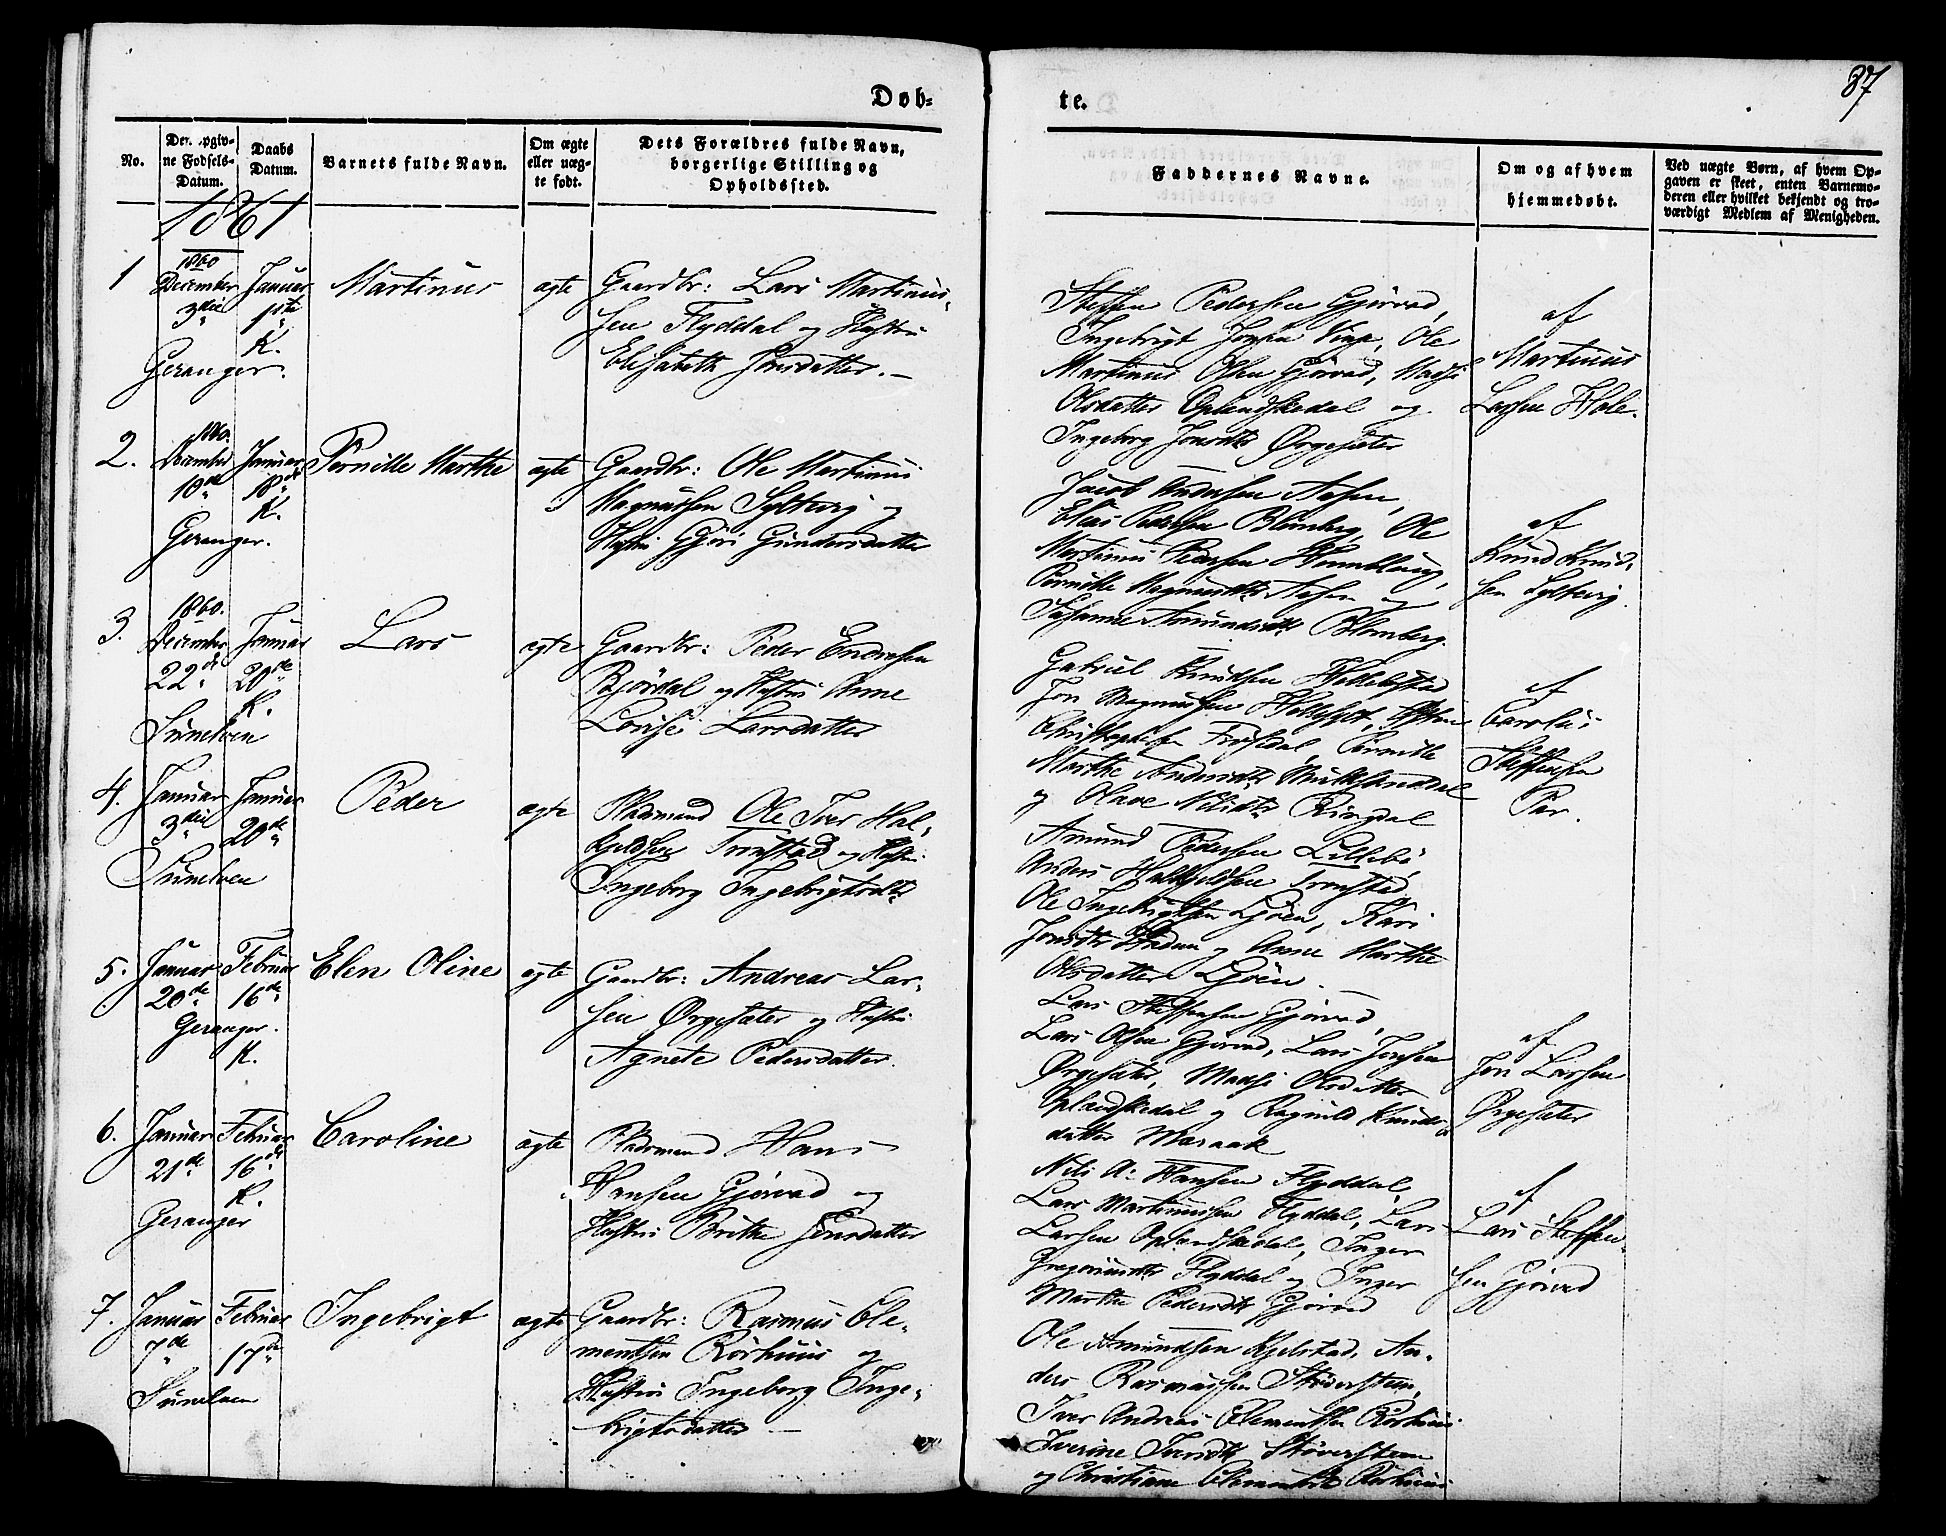 87
Døb-
te.
No.
Den opgiv-
ne Fødsels-
Datum.
Daabs
Datum.
Barnets fulde Navn.
Om ægte
eller uæg-
te født.
Dets Forældres fulde Navn,
borgerlige Stilling og
Opholdssted.
Faddernes Navne.
Om og af hvem
hjemmedøbt.
Ved uægte Børn, af hvem Op-
gaven er skeet, enten Barnemo-
deren eller hvilket bekjendt og tro-
værdigt Medlem af Menigheden.
1861
1
1860
December
3die
Geranger.
Januar
1ste
K.
Martinus
ægte
Gaardbr: Lars Martinus-
sen Flyddal og Hustru
Elisabeth Jonsdatter. —
Steffen Pedersen Gjørvad,
Ingebrigt Jonsen Vinje, Ole
Martinus Olsen Gjørvad, Madsi
Olsdatter Oplendskedal og
Ingeborg Jonsdtr Ørgesæter
af
Martinus
Larsen Hole.
2.
1860.
December
10de
Geranger.
Januar
18de
K.
Pernille Marthe
ægte
Gaardbr: Ole Martinus
Magnussen Syltevig og
Hustru Gjøri Gundersdatter
Jacob Andersen Aasen,
Elias Pedersen Blomberg, Ole
Martinus Pedersen
Pernille Magnusdtr Aasen og
Susanne Amundsdtr Blomberg.
af
Knud Knud-
sen Syltevig.
3.
1860.
December
22de
Sunelven
Januar
20de
K.
Lars
ægte
Gaardbr: Peder Endresen
Bjørdal og Hustru Anne
Lovise Larsdatter
Gabriel Knudsen Hellebostad
Jon Magnussen Hellesylt,
Christophersen Frøysedal, Pernille
Marthe Andersdtr
og Olave Nilsdtr Ringdal
af
Carolus
Steffensen
Per.
4.
Januar
3die
Sunelven
Januar
20de
Peder
ægte
Pladsmand Ole Iver Hal-
kjeldsen Tronstad og Hustru
Ingeborg Ingebrigtsdtr
Amund Pedersen Lillebø,
Anders Halkjeldsen Tronstad
Ole Ingebrigtsen Ljøen, Kari
Jonsdtr og Anne Marthe
Olsdatter Ljøen. —
5.
Januar
20de
Geranger.
Februar
16de
K.
Elen Oline
ægte
Gaardbr: Andreas Lar-
sen Ørgesæter og Hustru
Agnete Pedersdatter.
Lars Steffensen Gjørvad,
Lars Olsen Gjørvad, Lars Jonsen
Ørgesæter, Madsi Olsdatter
Oplendskedal og Ragnild Knuds-
datter Maraak
af
Jon Larsen
Ørgesæter
6.
Januar
21de
Geranger
Februar
16de
K.
Caroline
ægte
Pladsmand Hans
Hansen Gjørvad og
Hustru Brithe Jonsdatter
Nils A. Hansen Flyddal,
Lars Martinussen Flyddal, Lars
Larsen Oplendskedal, Inger
Gregoriusdtr Flyddal og Inger
Marthe Pedersdtr Gjørvad
af
Lars Steffen-
sen Gjørvad
7.
Januar
7de
Sunelven
Februar
17de
Ingebrigt
ægte
Gaardbr: Rasmus Cle-
mentsen Rørhuus og
Hustru Ingeborg Inge-
brigtsdatter —
Ole Amundsen Kjelstad, An-
ders Rasmussen Støverstein,
Iver Andreas Clementsen Rørhuus
Iverine Iversdtr Støverstein
og Christiane Clementsdtr Rørhuus